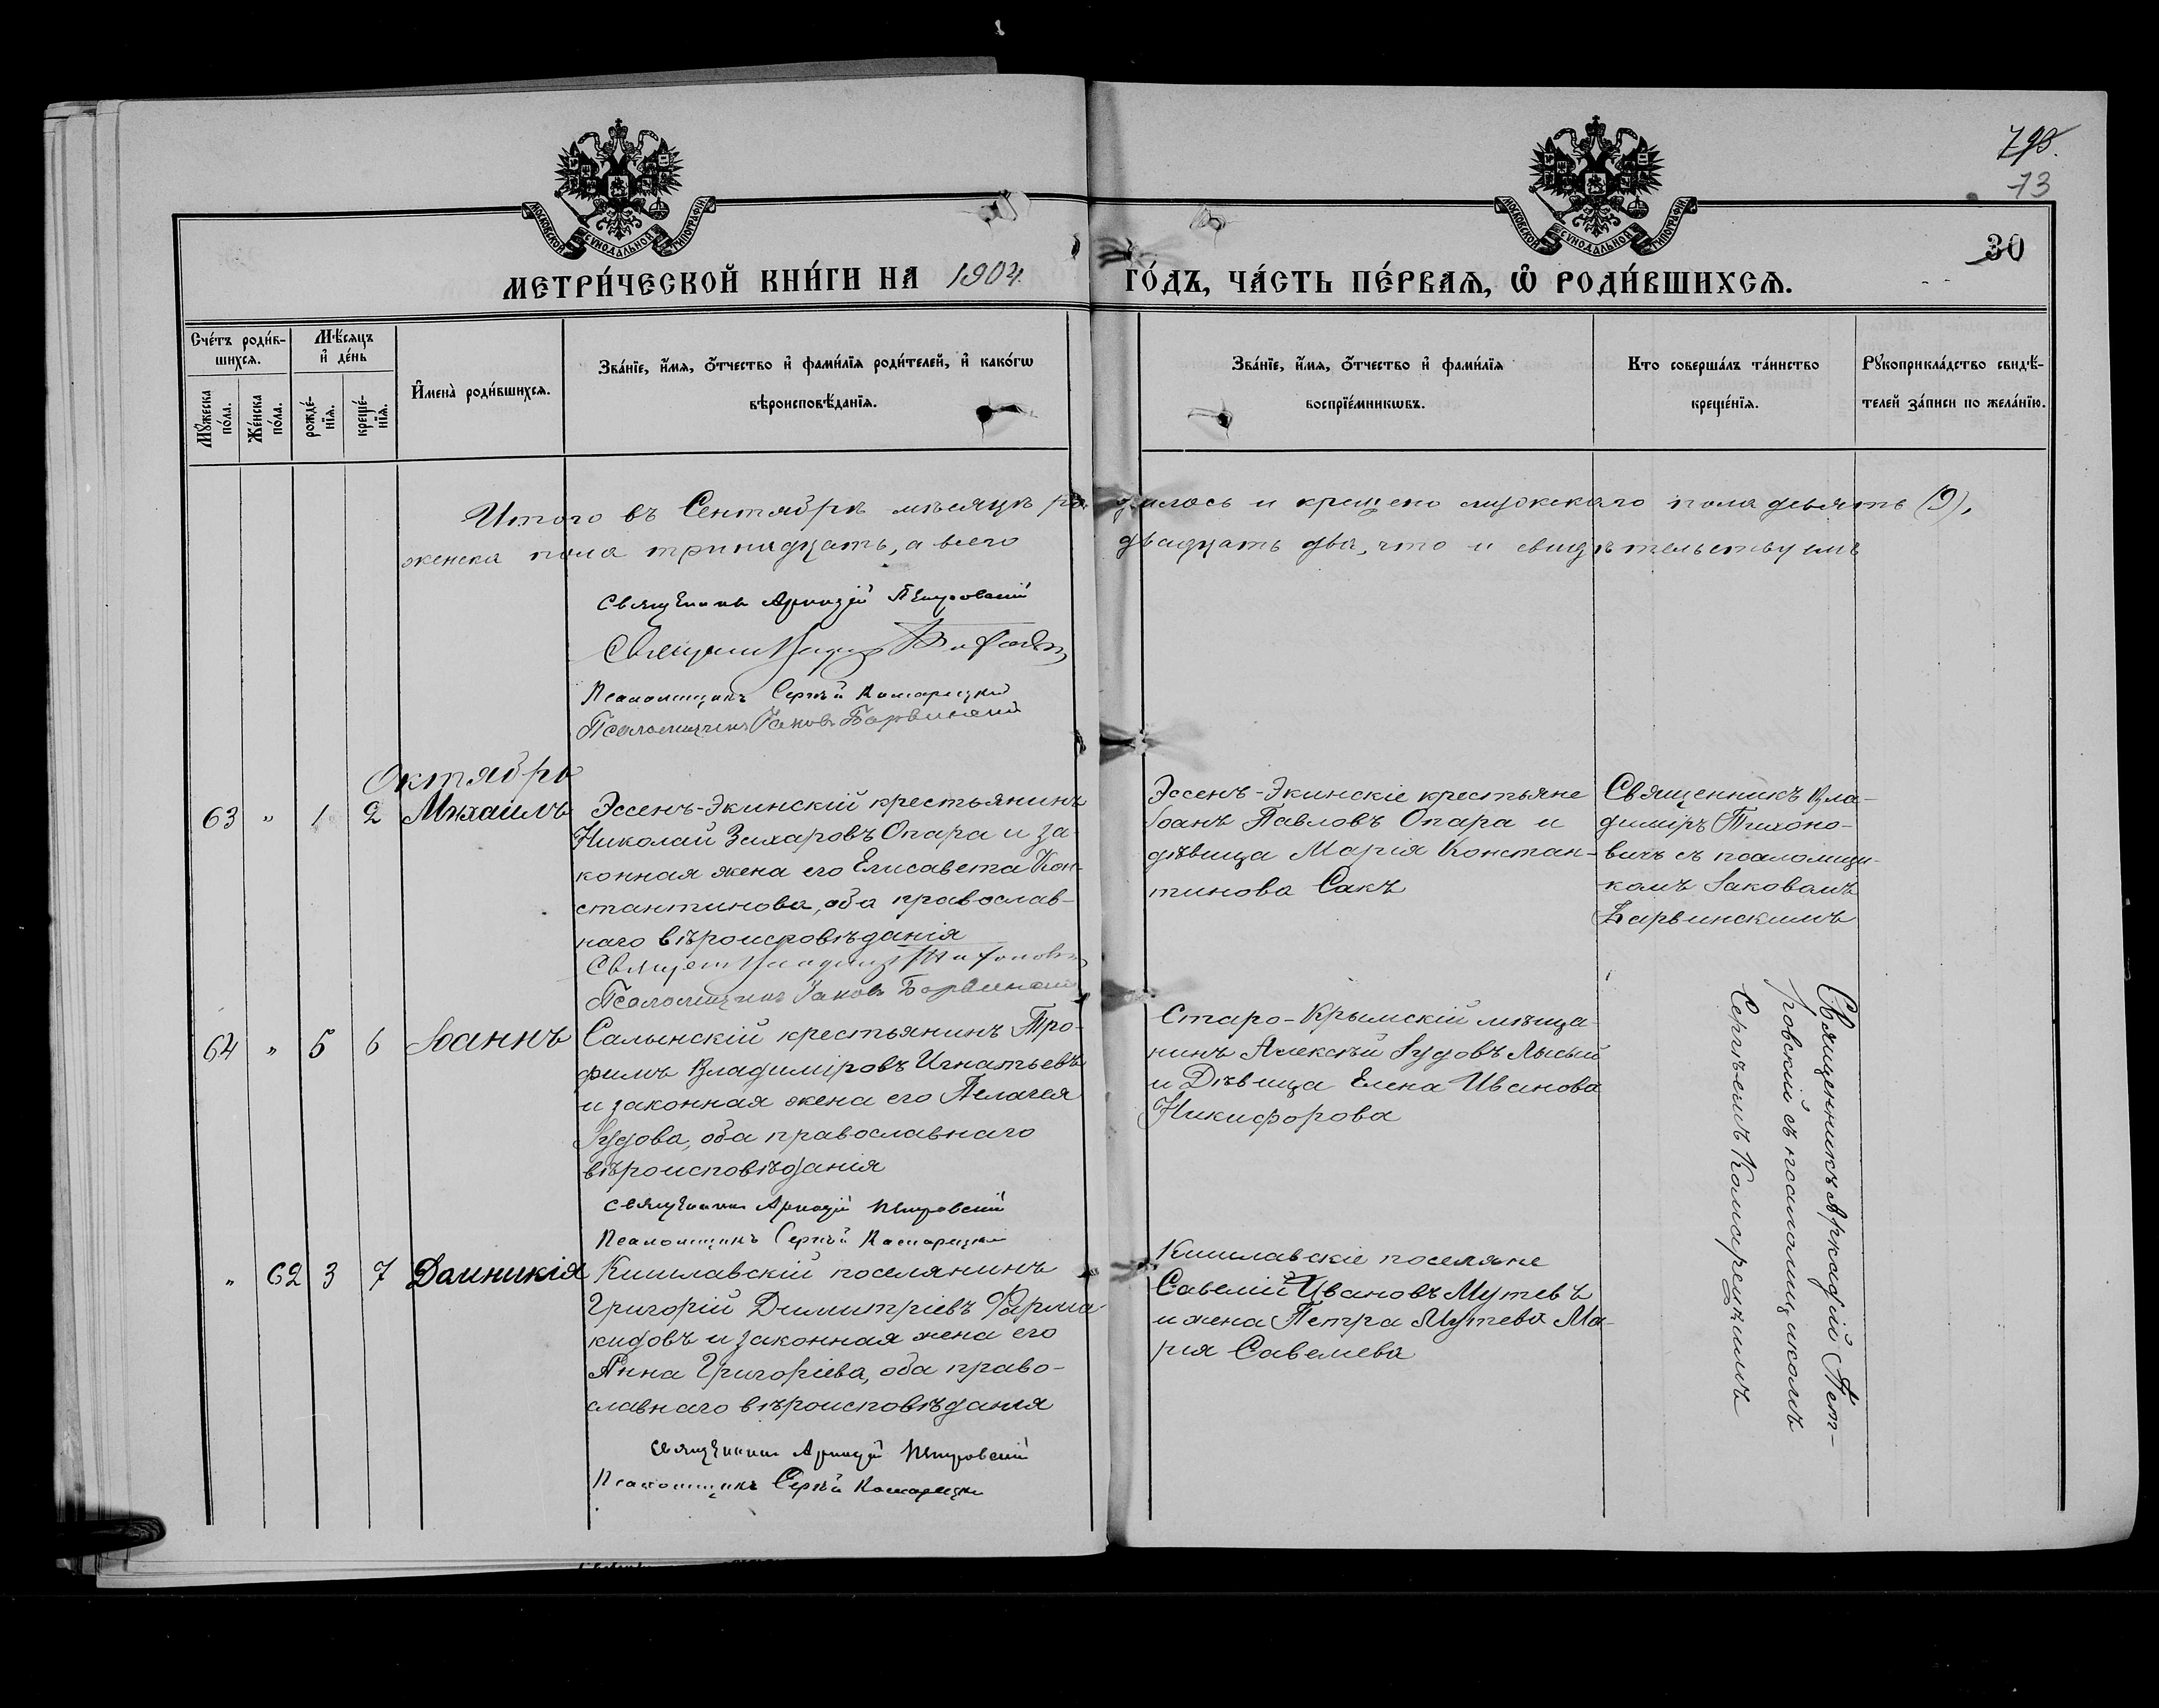 793.
73
30
МОСКОВСКОЙ СѴНОДАЛЬНОЙ ТИПОГРАФІИ
МОСКОВСКОЙ СѴНОДАЛЬНОЙ ТИПОГРАФІИ
МЕТРИ́ЧЕСКОЙ КНИ́ГИ НА 1904 ГО́ДЪ, ЧА́СТЬ ПЕ́РВАѦ, Ѽ РОДИ́ВШИХСѦ.
Сче́тъ роди́в-
шихсѧ.
Мꙋ́жеска
по́ла.
Же́нска
по́ла.
Мѣ́сѧцъ
и҆ де́нь
рожде́-
нїѧ.
креще́-
нїѧ.
И҆мена̀ роди́вшихсѧ.
Зва́нїе, и҆́мѧ, ѻ҆́тчество и҆ фами́лїѧ роди́телей, и҆ како́гѡ
вѣроисповѣ́данїѧ.
Зва́нїе, и҆́мѧ, ѻ҆́тчество и҆ фами́лїѧ
воспрїе́мникѡвъ.
Кто соверша́лъ та́инство
креще́нїѧ.
Рꙋкоприкла́дство свидѣ́-
телей за́писи по жела́нїю.
Итого въ Сентябрѣ мѣсяцѣ родилось и крещено мужескаго пола девять (9),
женска пола тринадцать, а всего двадцать два, что и свидѣтельствуемъ
Священникъ Аркадій Петровскій
Священникъ Владиміръ Тихоновичъ
Псаломщикъ Сергѣй Комарецкій
Псаломщикъ Іаковъ Барвинскій
Октябрь
63 " 1 2 Михаилъ
Эссенъ-Экинскій крестьянинъ
Николай Захаровъ Опара и за-
конная жена его Елисавета Кон-
стантинова, оба православ-
наго вѣроисповѣданія
Священ Владиміръ Тихоновичъ
Псаломщикъ Іаковъ Барвинскій
Эссенъ-Экинскіе крестьяне
Іоанъ Павловъ Опара и
дѣвица Марія Констан-
тинова Сакъ
Священникъ Вла-
диміръ Тихоно-
вичъ съ псаломщи-
комъ Іаковомъ
Барвинскимъ
64 " 5 6 Іоаннъ
Салынскій крестьянинъ Тро-
фимъ Владиміровъ Игнатьевъ
и законная жена его Пелагея
Іудова, оба православнаго
вѣроисповѣданія
Священникъ Аркадій Петровскій
Псаломщикъ Сергѣй Комарецкій
Старо-Крымскій мѣща-
нинъ Алексѣй Іудовъ Лысый
и Дѣвица Елена Иванова
Никифорова
Священникъ Аркадій Пет-
ровскій съ псаломщикомъ
Сергѣемъ Комарецкимъ
" 62 3 7 Домникія
Кишлавскій поселянинъ
Григорій Димитріевъ Фарма-
кидовъ и законная жена его
Анна Григоріева, оба право-
славнаго вѣроисповѣданія
Священникъ Аркадій Петровскій
Псаломщикъ Сергѣй Комарецкій
Кишлавскіе поселяне
Савелій Ивановъ Мутевъ
и жена Петра Мутева Ма-
рія Савелиева